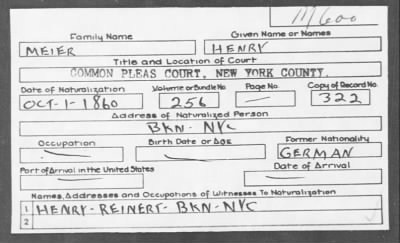 M600
Family Name Given Name or Names
MEIER HENRY
Title and Location of Court
COMMON PLEAS COURT, NEW YORK COUNTY.
Date of Naturalization Volume or Bundle No. Page No. Copy of Record No.
OCT-1-1860 256 — 322
Address of Naturalized Person
BKN-NYC
Occupation Birth Date or Age Former Nationality
— — GERMAN
Port of Arrival in the United States Date of Arrival
— —
Names, Addresses and Occupations of Witnesses To Naturalization
1 HENRY-REINERT-BKN-NYC
2